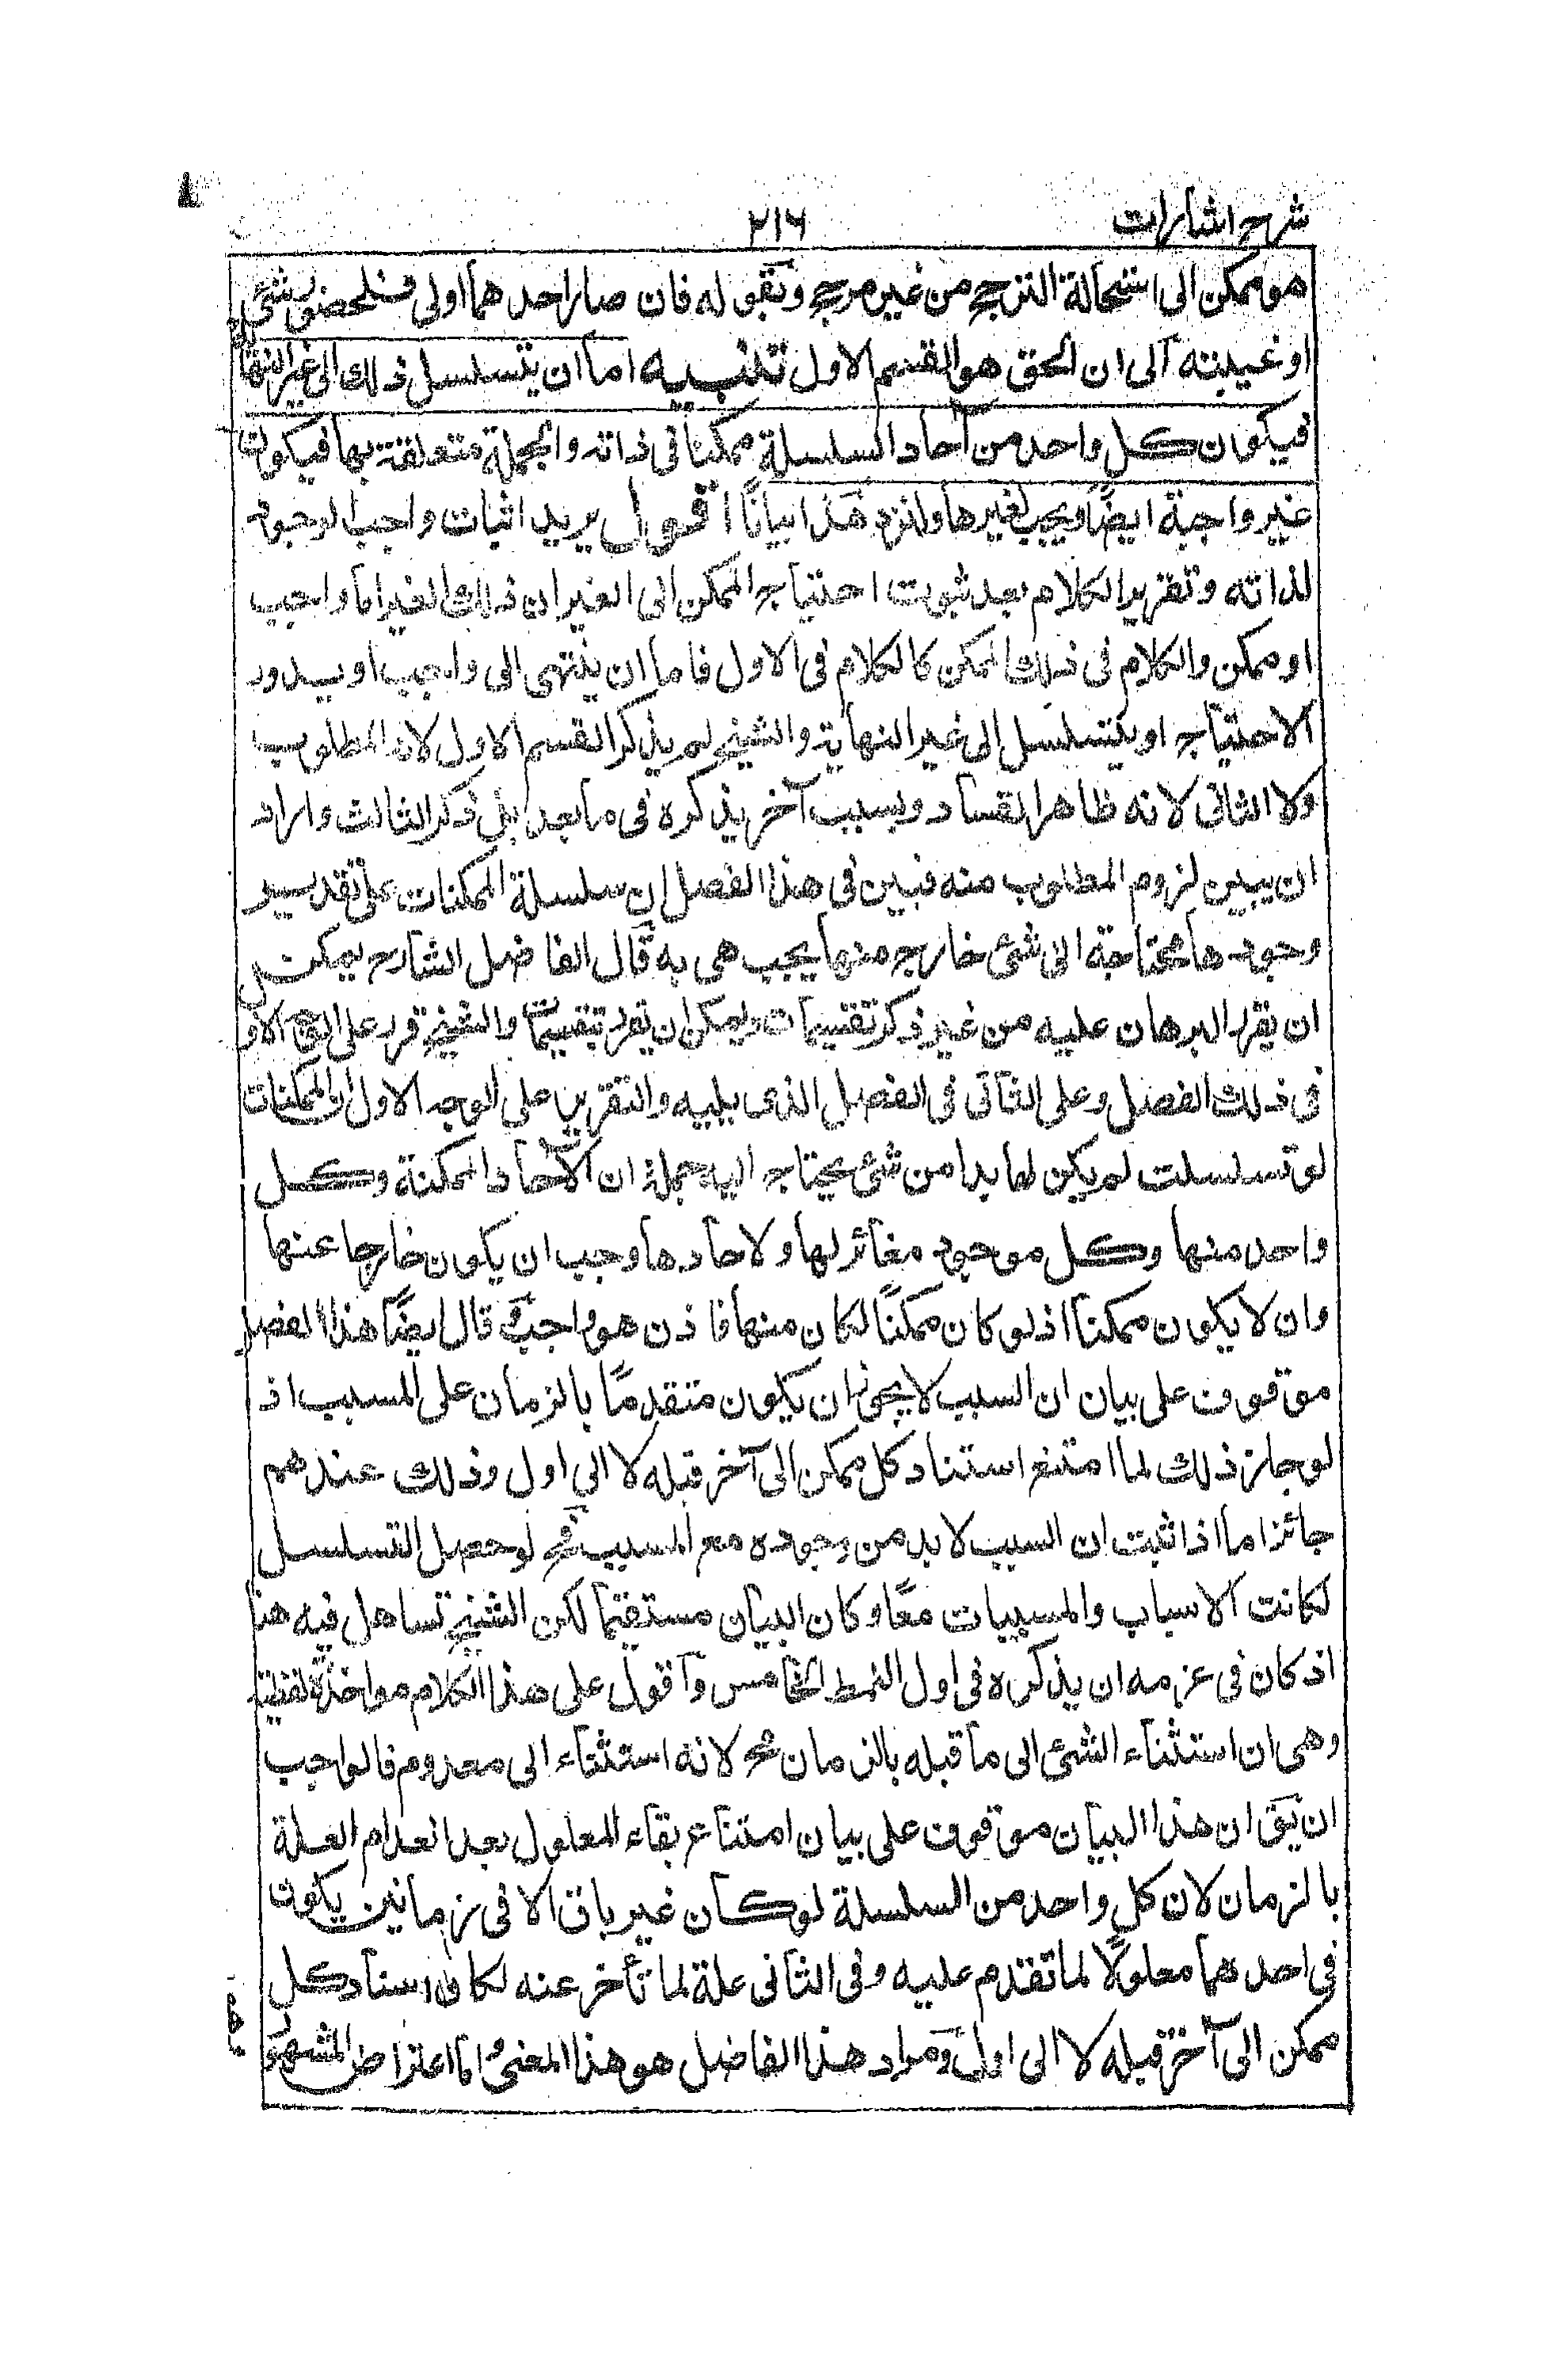 شرح اشارات ٢١٦
هو ممكن الى استحالة الترجح من غير مرجح وبقوله فان صار احدهما اولى فلحضور شئ
او غيبته الى ان الحق هو القسم الاول تنبيه اما ان يتسلسل ذلك الى غير النهاية
فيكون كل واحد من آحاد السلسلة ممكنا فى ذاته والجملة متعلقة بها فيكون
غير واجبة ايضاً ويجب لغيرها ولنزد هذا بياناً اقول يريد اثبات واجب الوجود
لذاته وتقرير الكلام بعد ثبوت احتياج الممكن الى الغير ان ذلك الغير اما واجب
او ممكن والكلام فى ذلك الممكن كالكلام فى الاول فاما ان ينتهى الى واجب او يدور
الاحتياج او يتسلسل الى غير النهاية والشيخ لم يذكر القسم الاول لانه المطلوب
ولا الثانى لانه ظاهر الفساد وبسبب آخر يذكره فى ما بعد بل ذكر الثالث واراد
ان يبين لزوم المطلوب منه فبين فى هذا الفصل ان سلسلة الممكنات على تقدير
وجودها محتاجة الى شئ خارج منها يجب هى به قال الفاضل الشارح يمكن
ان يقرر البرهان عليه من غير ذكر تقسيمات ويمكن ان يقرر بتقسيمات والشيخ قرر على الوجه الاول
فى ذلك الفصل وعلى الثانى فى الفصل الذى يليه والتقرير على الوجه الاول ان الممكنات
لو تسلسلت لم يكن لها بدا من شئ يحتاج اليه جملة ان الآحاد الممكنة وكل
واحد منها وكل موجود مغائر لها ولاحادها وجب ان يكون خارجا عنها
وان لا يكون ممكنا اذ لو كان ممكنًا لكان منها فاذن هو واجب وقال ايضًا هذا الفصل
موقوف على بيان ان السبب لا يجوز ان يكون متقدمًا بالزمان على المسبب اذ
لو جاز ذلك لما امتنع استناد كل ممكن الى آخر قبله لا الى اول وذلك عندهم
جائز اما اذا ثبت ان السبب لا بد من وجوده مع المسبب فح لو حصل التسلسل
لكانت الاسباب والمسببات معًا وكان البيان مستقيما لكن الشيخ تساهل فيه هنا
اذ كان فى عزمه ان يذكره فى اول النمط الخامس واقول على هذا الكلام مواخذة لفظية
وهى ان استثناء الشئ الى ما قبله بالزمان مح لانه استثناء الى معدوم فالواجب
ان يق ان هذا البيان موقوف على بيان امتناع بقاء المعلول بعد انعدام العلة
بالزمان لان كل واحد من السلسلة لو كان غير باق الا فى زمانين يكون
فى احدهما معلولًا لما تقدم عليه وفى الثانى علة لما تأخر عنه لكان اسناد كل
ممكن الى آخر قبله لا الى اول ومراد هذا الفاضل هو هذا المعنى واما اعتراض المشهور